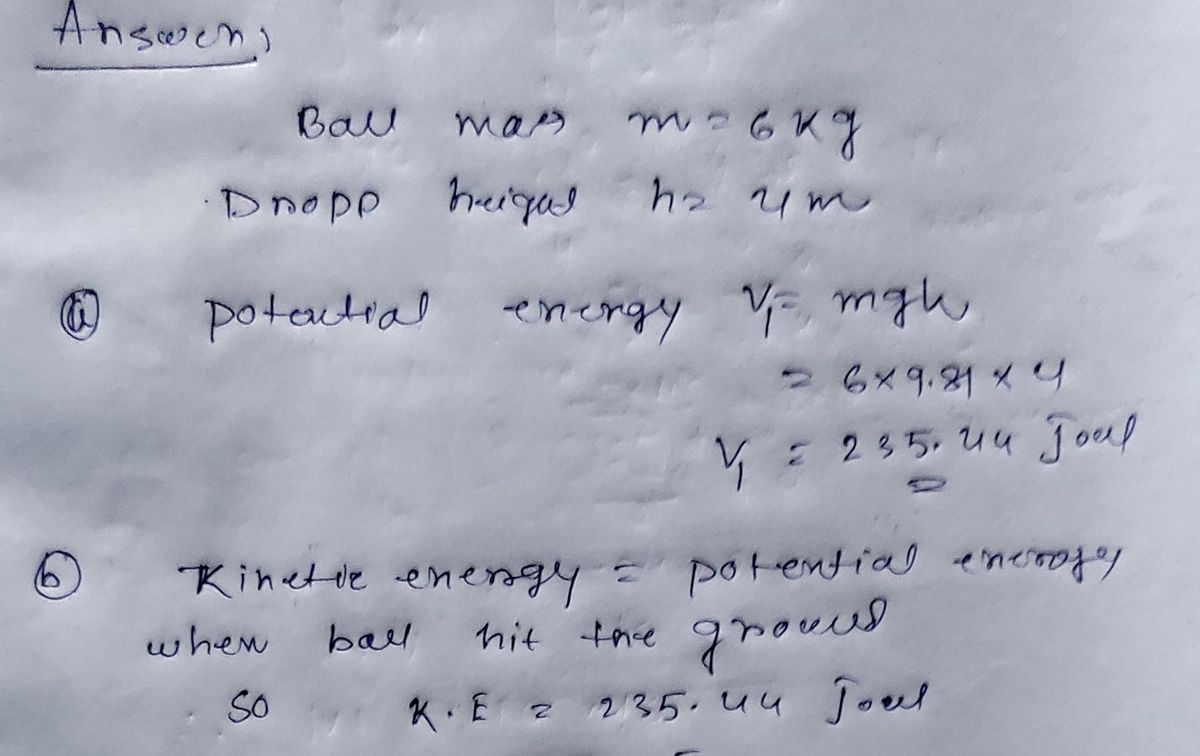 Answer,
Ball mass m = 6 Kg
Dropp height h = 4m
(a) potential energy V₁ = mgh
= 6 × 9.81 × 4
V₁ = 235.44 Joul
(b) Kinetic energy = potential energy
when ball hit the ground
so K.E = 235.44 Joul